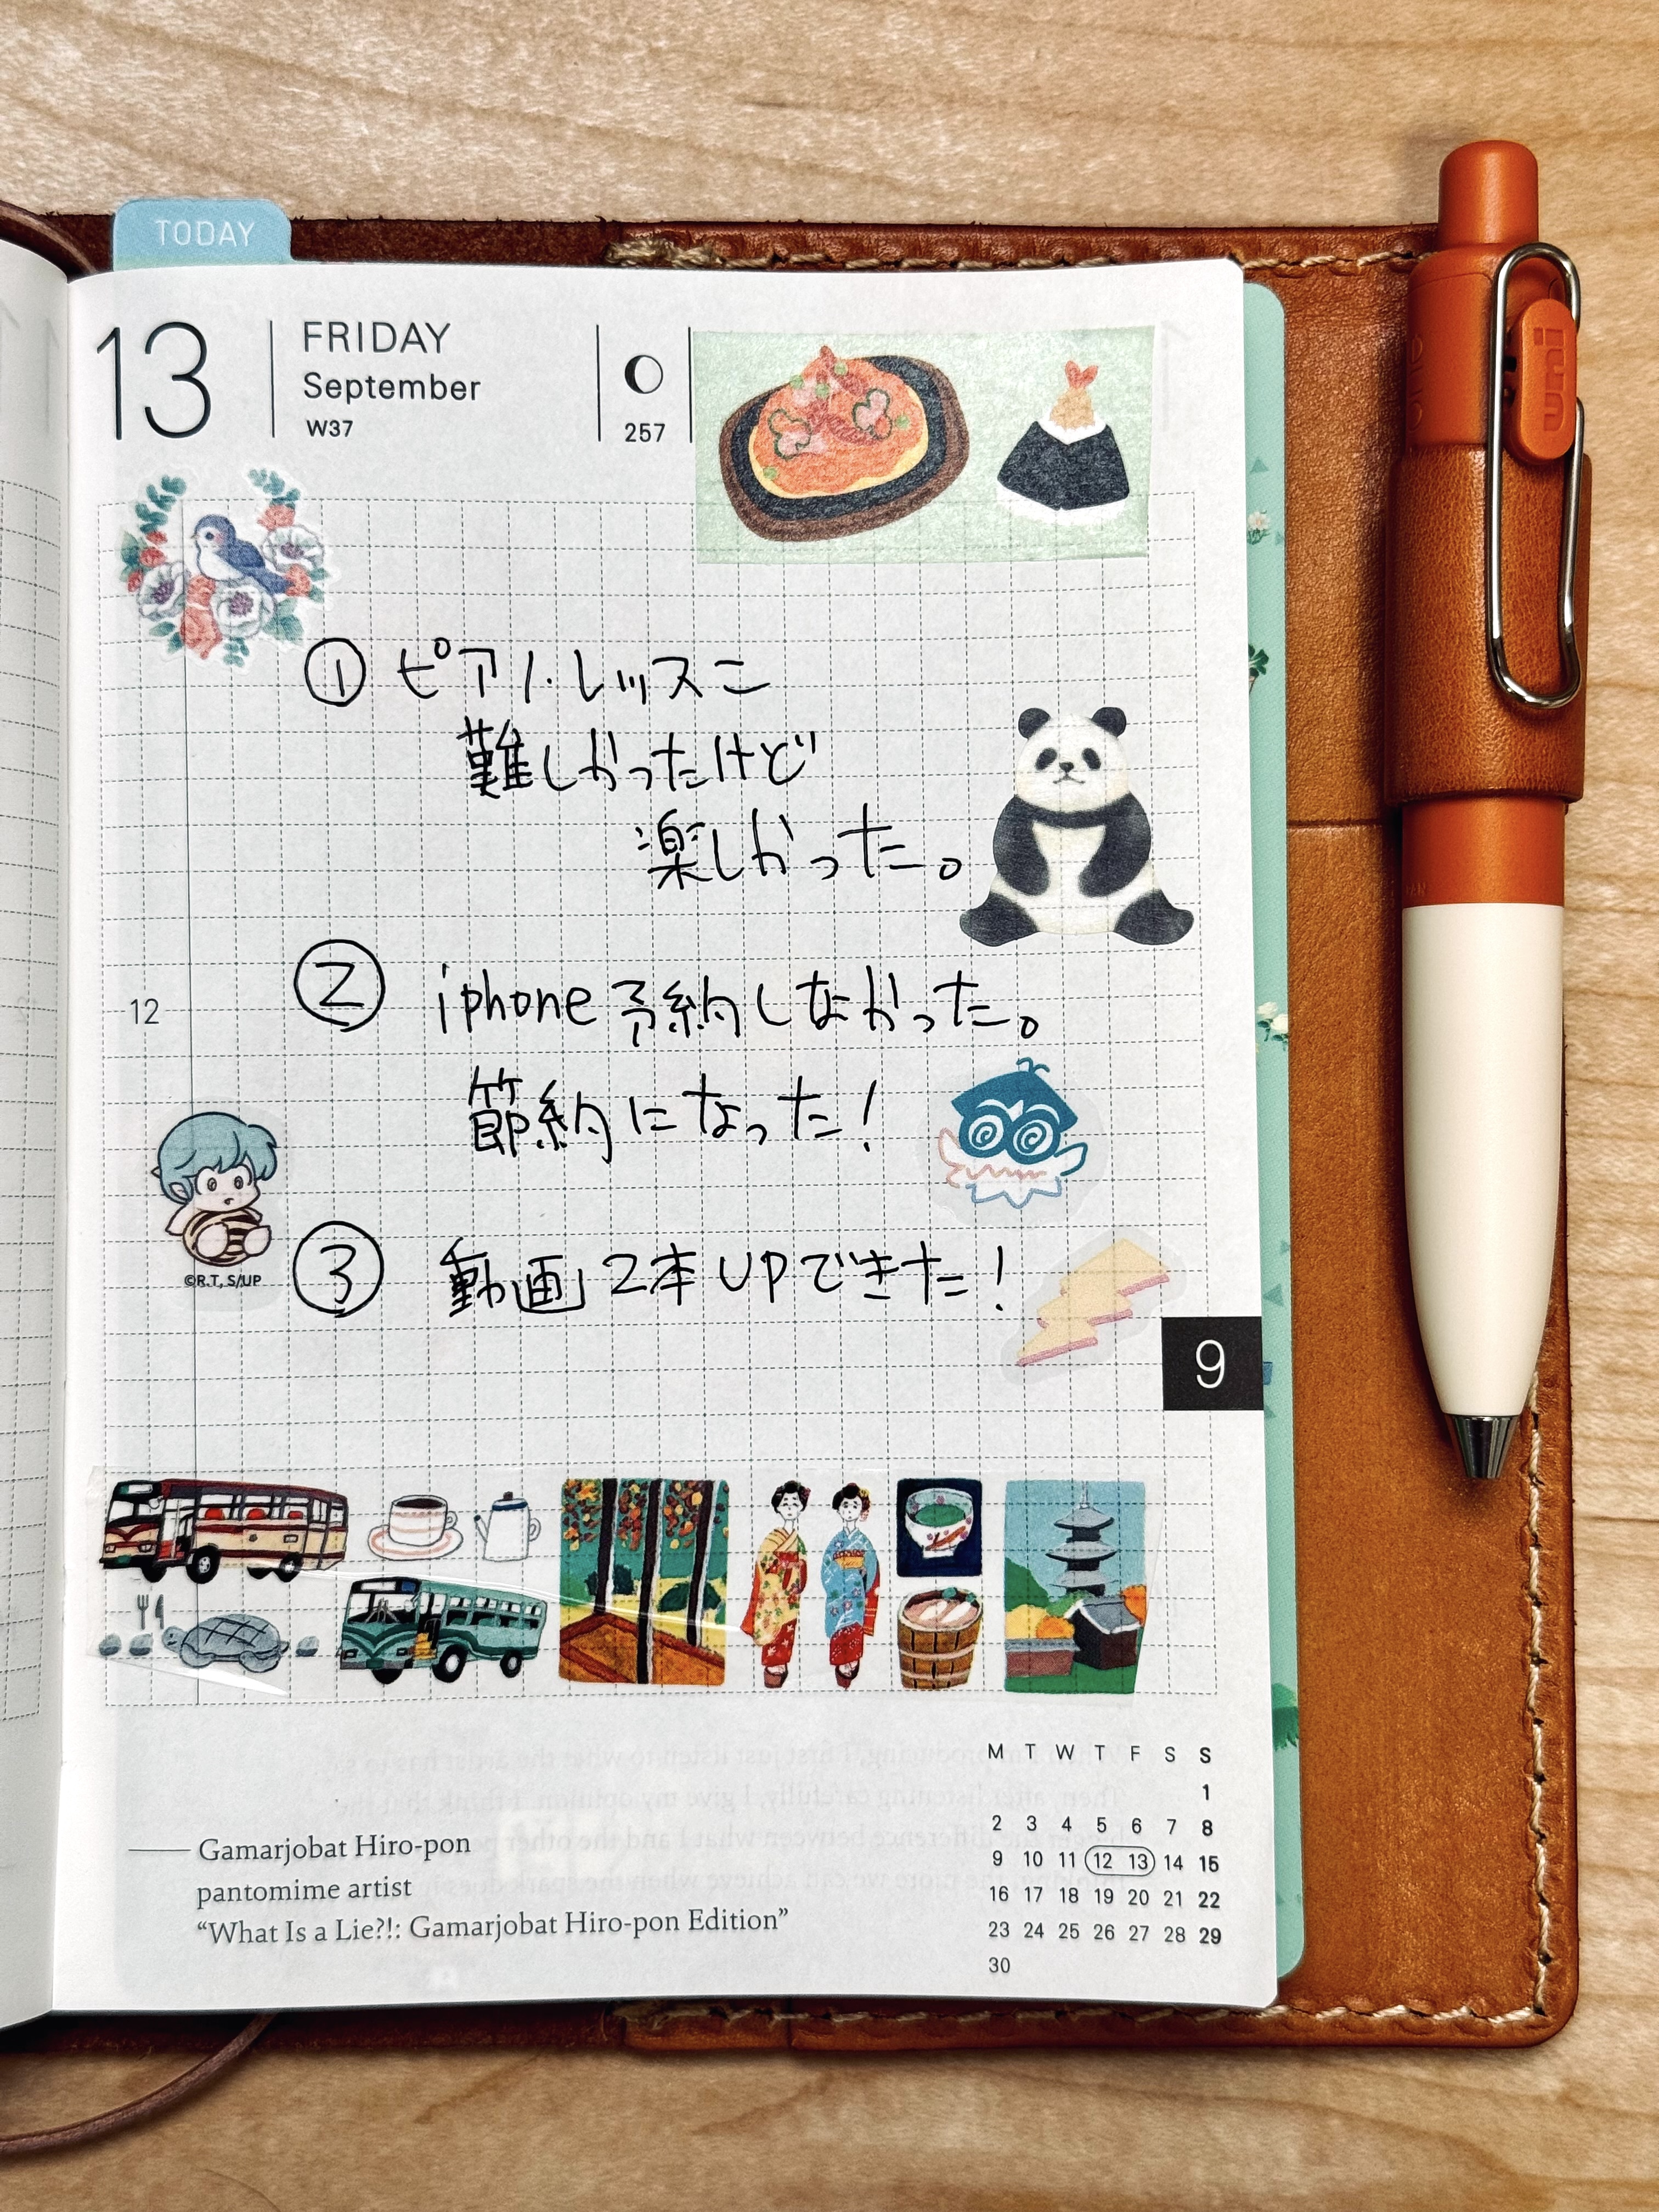 TODAY
13
FRIDAY
September
W37
257
① ピアノ・レッスン
難しかったけど
楽しかった。
12
② iphone 予約しなかった。
節約になった!
©R.T, S/UP
③ 動画 2本 UPできた!
9
M T W T F S S
1
2 3 4 5 6 7 8
9 10 11 12 13 14 15
16 17 18 19 20 21 22
23 24 25 26 27 28 29
30
Gamarjobat Hiro-pon
pantomime artist
“What Is a Lie?!: Gamarjobat Hiro-pon Edition”
uni